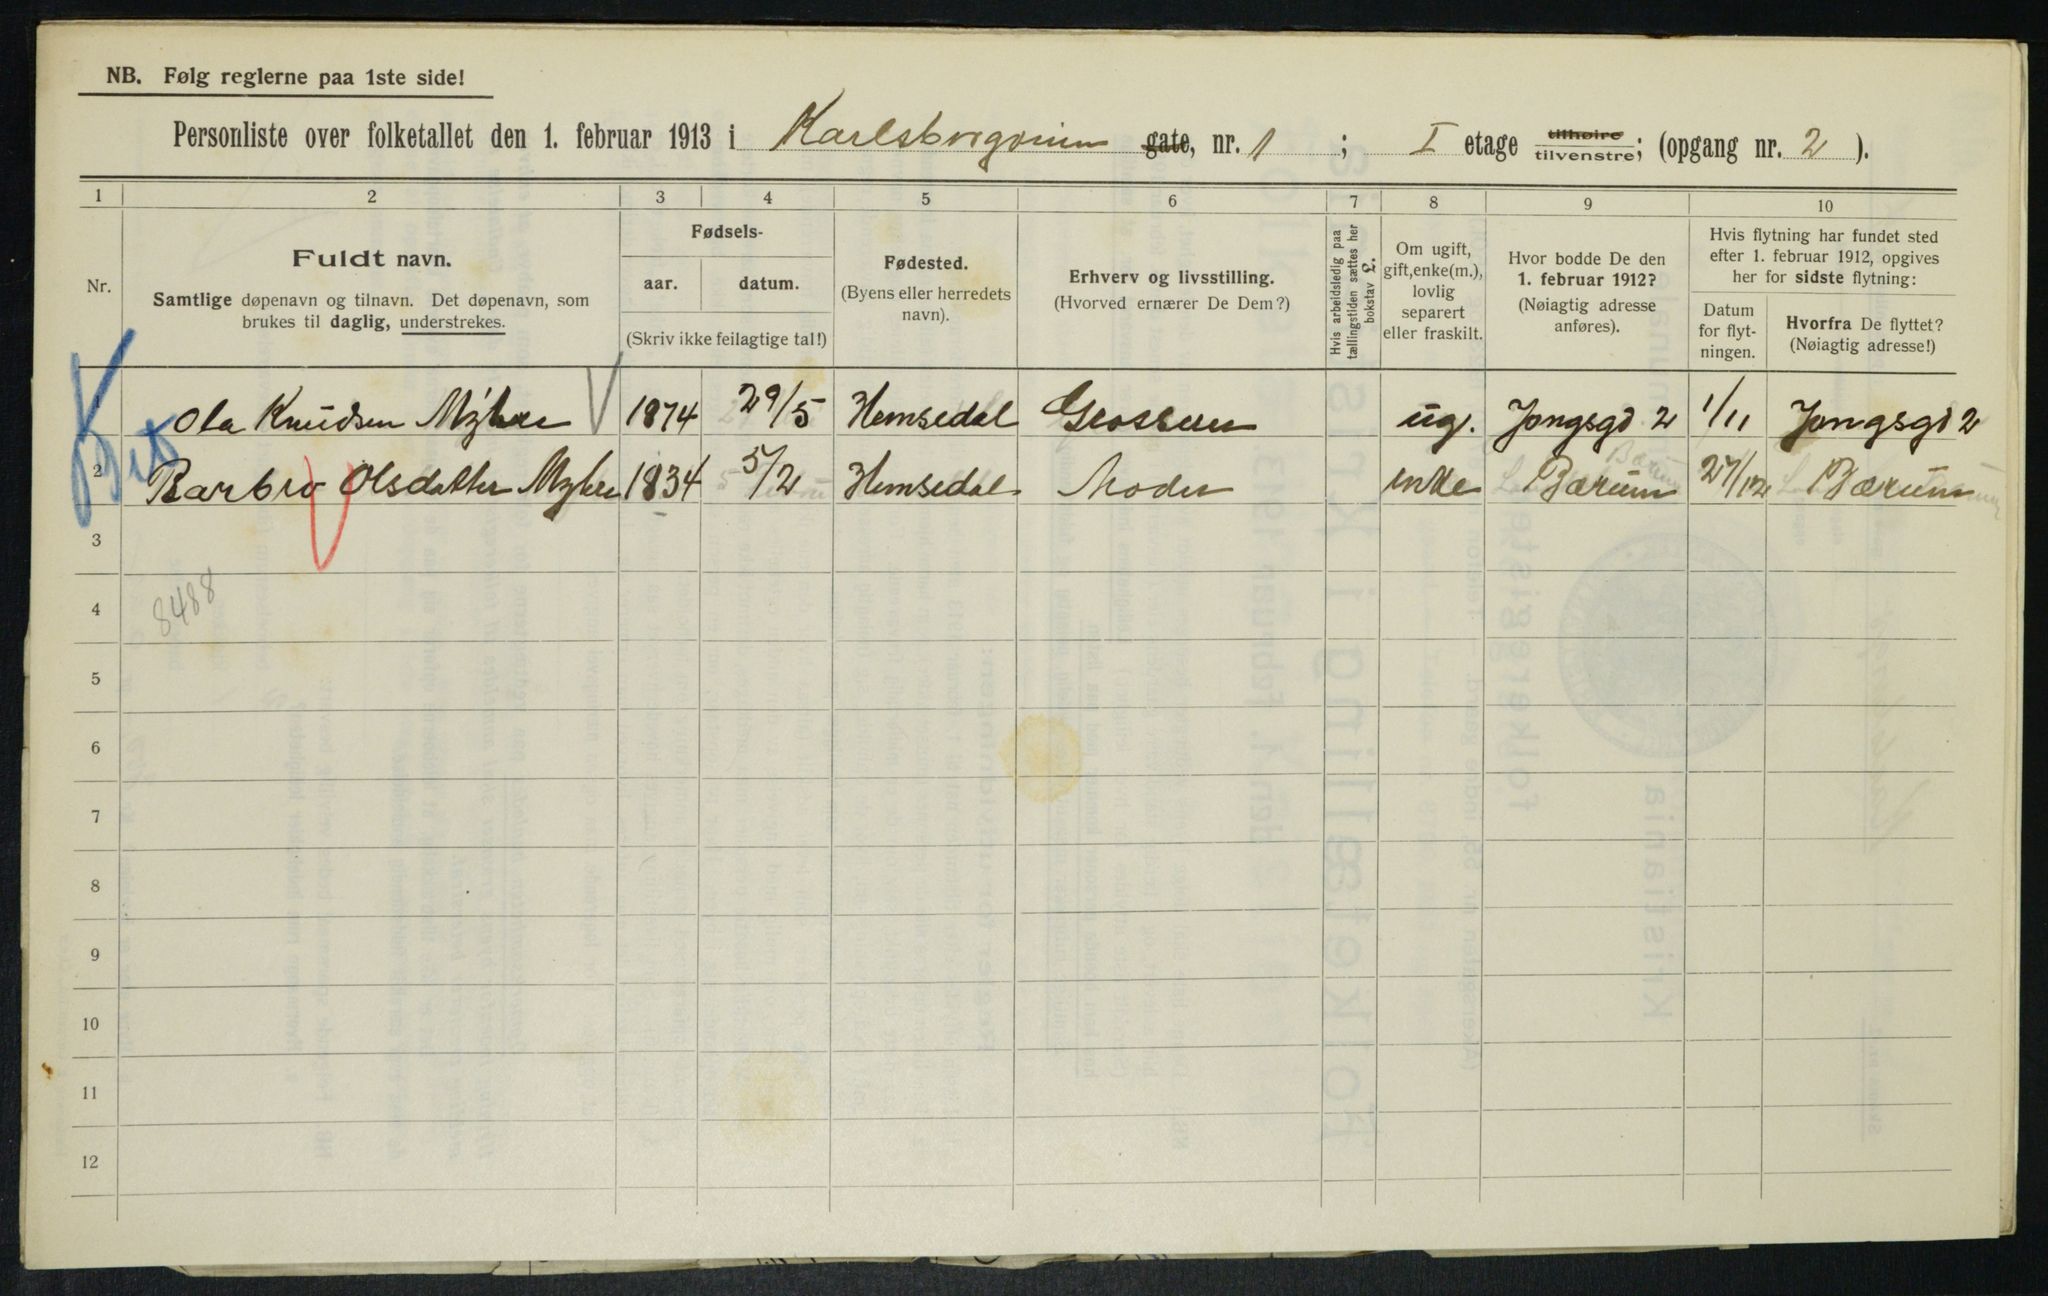 NB. Følg reglerne paa 1ste side!
Personliste over folketallet den 1. februar 1913 i Karlsborgveien gate, nr. 1 ; I etage tilhøire tilvenstre; (opgang nr. 2 ).
1 2 3 4 5 6 7 8 9 10
Nr.
Fuldt navn.
Samtlige døpenavn og tilnavn. Det døpenavn, som
brukes til daglig, understrekes.
Fødsels-
aar. datum.
(Skriv ikke feilagtige tal!)
Fødested.
(Byens eller herredets
navn).
Erhverv og livsstilling.
(Hvorved ernærer De Dem?)
Hvis arbeidsledig paa
tællingstiden sættes her
bokstav £.
Om ugift,
gift, enke(m.),
lovlig
separert
eller fraskilt.
Hvor bodde De den
1. februar 1912?
(Nøiagtig adresse
anføres).
Hvis flytning har fundet sted
efter 1. februar 1912, opgives
her for sidste flytning:
Datum
for flyt-
ningen.
Hvorfra De flyttet?
(Nøiagtig adresse!)
Ola Knudsen Myhre 1874 29/5 Hemsedal Grosserer ug. Jongsgd 2 1/11 Jongsgd 2
2 Barbro Olsdatter Myhre 1834 5/2 Hemsedal Moder enke Bærum 27/12 Bærum
3
8488
4
5
6
7
8
9
10
11
12